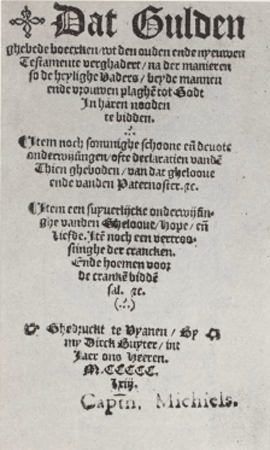 Dat Gulden
ghebede boecxken/ wt den ouden ende nyeuwen
Testamente verghadert/ na der manieren
so de heylighe Vaders/ beyde mannen
ende vrouwen plaghẽ tot Godt
In haren nooden
te bidden.
Item noch sommighe schoone eñ deuote
onderwijsingen/ ofte declaratien vandẽ
Thien gheboden/ van dat ghelooue
ende vanden Paternoster. ⁊c.
Item een suyuerlijcke onderwijsin-
ghe vanden Ghelooue/ Hope/ eñ
Liefde. Itẽ noch een vertroo-
stinghe der crancken.
Ende hoemen voor
de cranckẽ biddẽ
sal. ⁊c.
(∴)
Ghedruckt te Vyanen/ By
my Dirck Buyter/ int
Jaer ons Heeren.
M.CCCCC.
Lxiij.
Captn. Michiels.